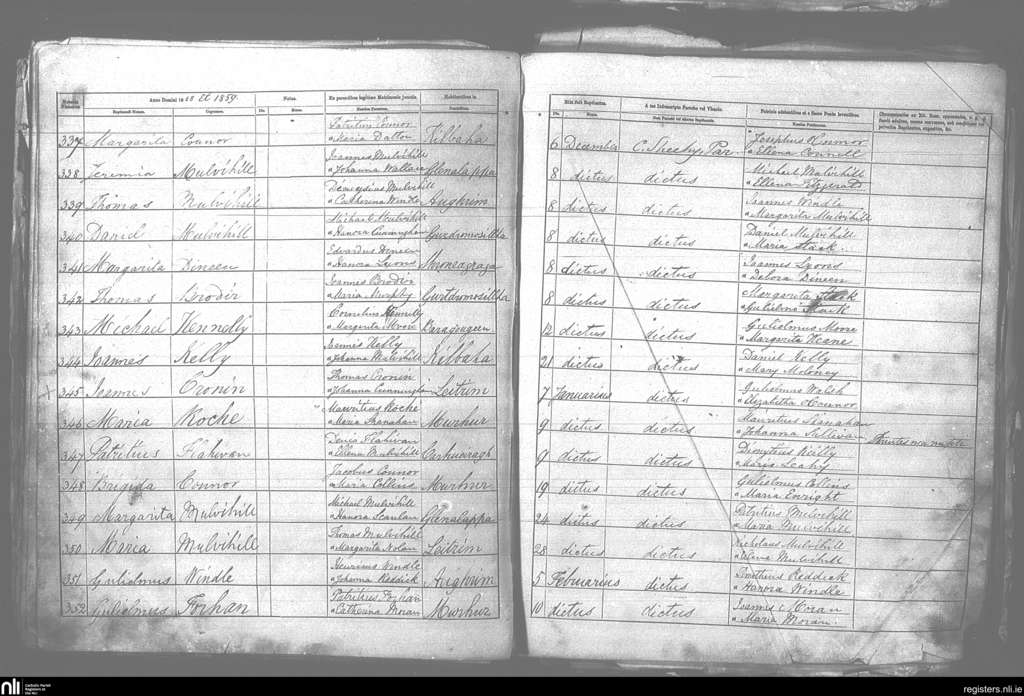 Anno Domini 18 58 et 1859.
Natus.
Ex parentibus legitimo Matrimonio junctis.
Habitantibus in
Numerus
Baptizandi Nomen.
Cognomen.
Die.
Mense.
Nomina Parentum.
Domicilium.
337 Margarita Connor
Patritius Connor
" Maria Dalton
Kilbaha
338 Jeremia Mulvihill
Joannes Mulvihill
" Johanna Wallace
Glenalappa
339 Thomas Mulvihill
Demeysius Mulvihill
" Catherina Windle
Aughrim
340 Daniel Mulvihill
Michael Mulvihill
" Hanora Cunningham
Gurdromosillha
341 Margarita Dineen
Edvardus Dineen
" Hanora Lyons
342 Thomas Brodir
Joannes Brodir
" Maria Murphy
Gurtdromosillha
343 Michael Kennelly
Cornelius Kennelly
" Margarita Moore
Karagougeen
344 Joannes Kelly
Joannes Kelly
" Johanna Mulvihill
Kilbaha
345 Joannes Cronin
Thomas Cronin
" Johanna Cunningham
Leitrim
346 Maria Roche
Mauritius Roche
" Maria Shanahan
Murhur
347 Patritius Flahivan
Denis Flahivan
" Ellena Mulvihill
Carhueragh
348 Brigida Connor
Jacobus Connor
" Maria Collins
Murhur
349 Margarita Mulvihill
Michael Mulvihill
" Hanora Scanlan
Glenalappa
350 Maria Mulvihill
Thomas Mulvihill
" Margarita Nolan
Leitrim
351 Gulielmus Windle
" Johanna Reddick
Aughrim
352 Gulielmus Forhan
Patritius Forhan
" Catherina Moran
Murhur
Ritè fuit Baptizatus.
A me Infrascripto Parocho vel Vicario.
Patrinis adstantibus et e Sacro Fonte levantibus.
Die.
Mense.
Nomina Patrinorum.
6 Decembis C. Sheehy, Par
Josephus Connor
" Ellena Connell
8 dictus dictus
Michael Mulvihill
" Ellena Fitzgerald
8 dictus dictus
Joannes Windle
" Margarita Mulvihill
8 dictus dictus
Daniel Mulvihill
" Maria Stack.
8 dictus dictus
Joannes Lyons
" Debora Dineen
8 dictus dictus
Margarita Stack
" Gulielmus Stack
12 dictus dictus
Gulielmus Moore
" Margarita Keane
21 dictus dictus
Daniel Kelly
" Mary Moloney
7 Januarius dictus
Gulielmus Walsh
" Elizabetha O'Connor
9 dictus dictus
Mauritius Shanahan
" Johanna Sullivan
9 dictus dictus
Dionytius Reilly
" Maria Leahy
19 dictus dictus
Gulielmus Collins
" Maria Enright
24 dictus dictus
Patritius Mulvihill
" Maria Mulvihill
28 dictus dictus
Nicholaus Mulvihill
" Elena Mulvihill
5 Februarius dictus
Timotheus Reddick
" Hanora Windle
10 dictus dictus
Joannes Moran
" Maria Moran.
nli Catholic Parish
Registers at
the NLI
registers.nli.ie